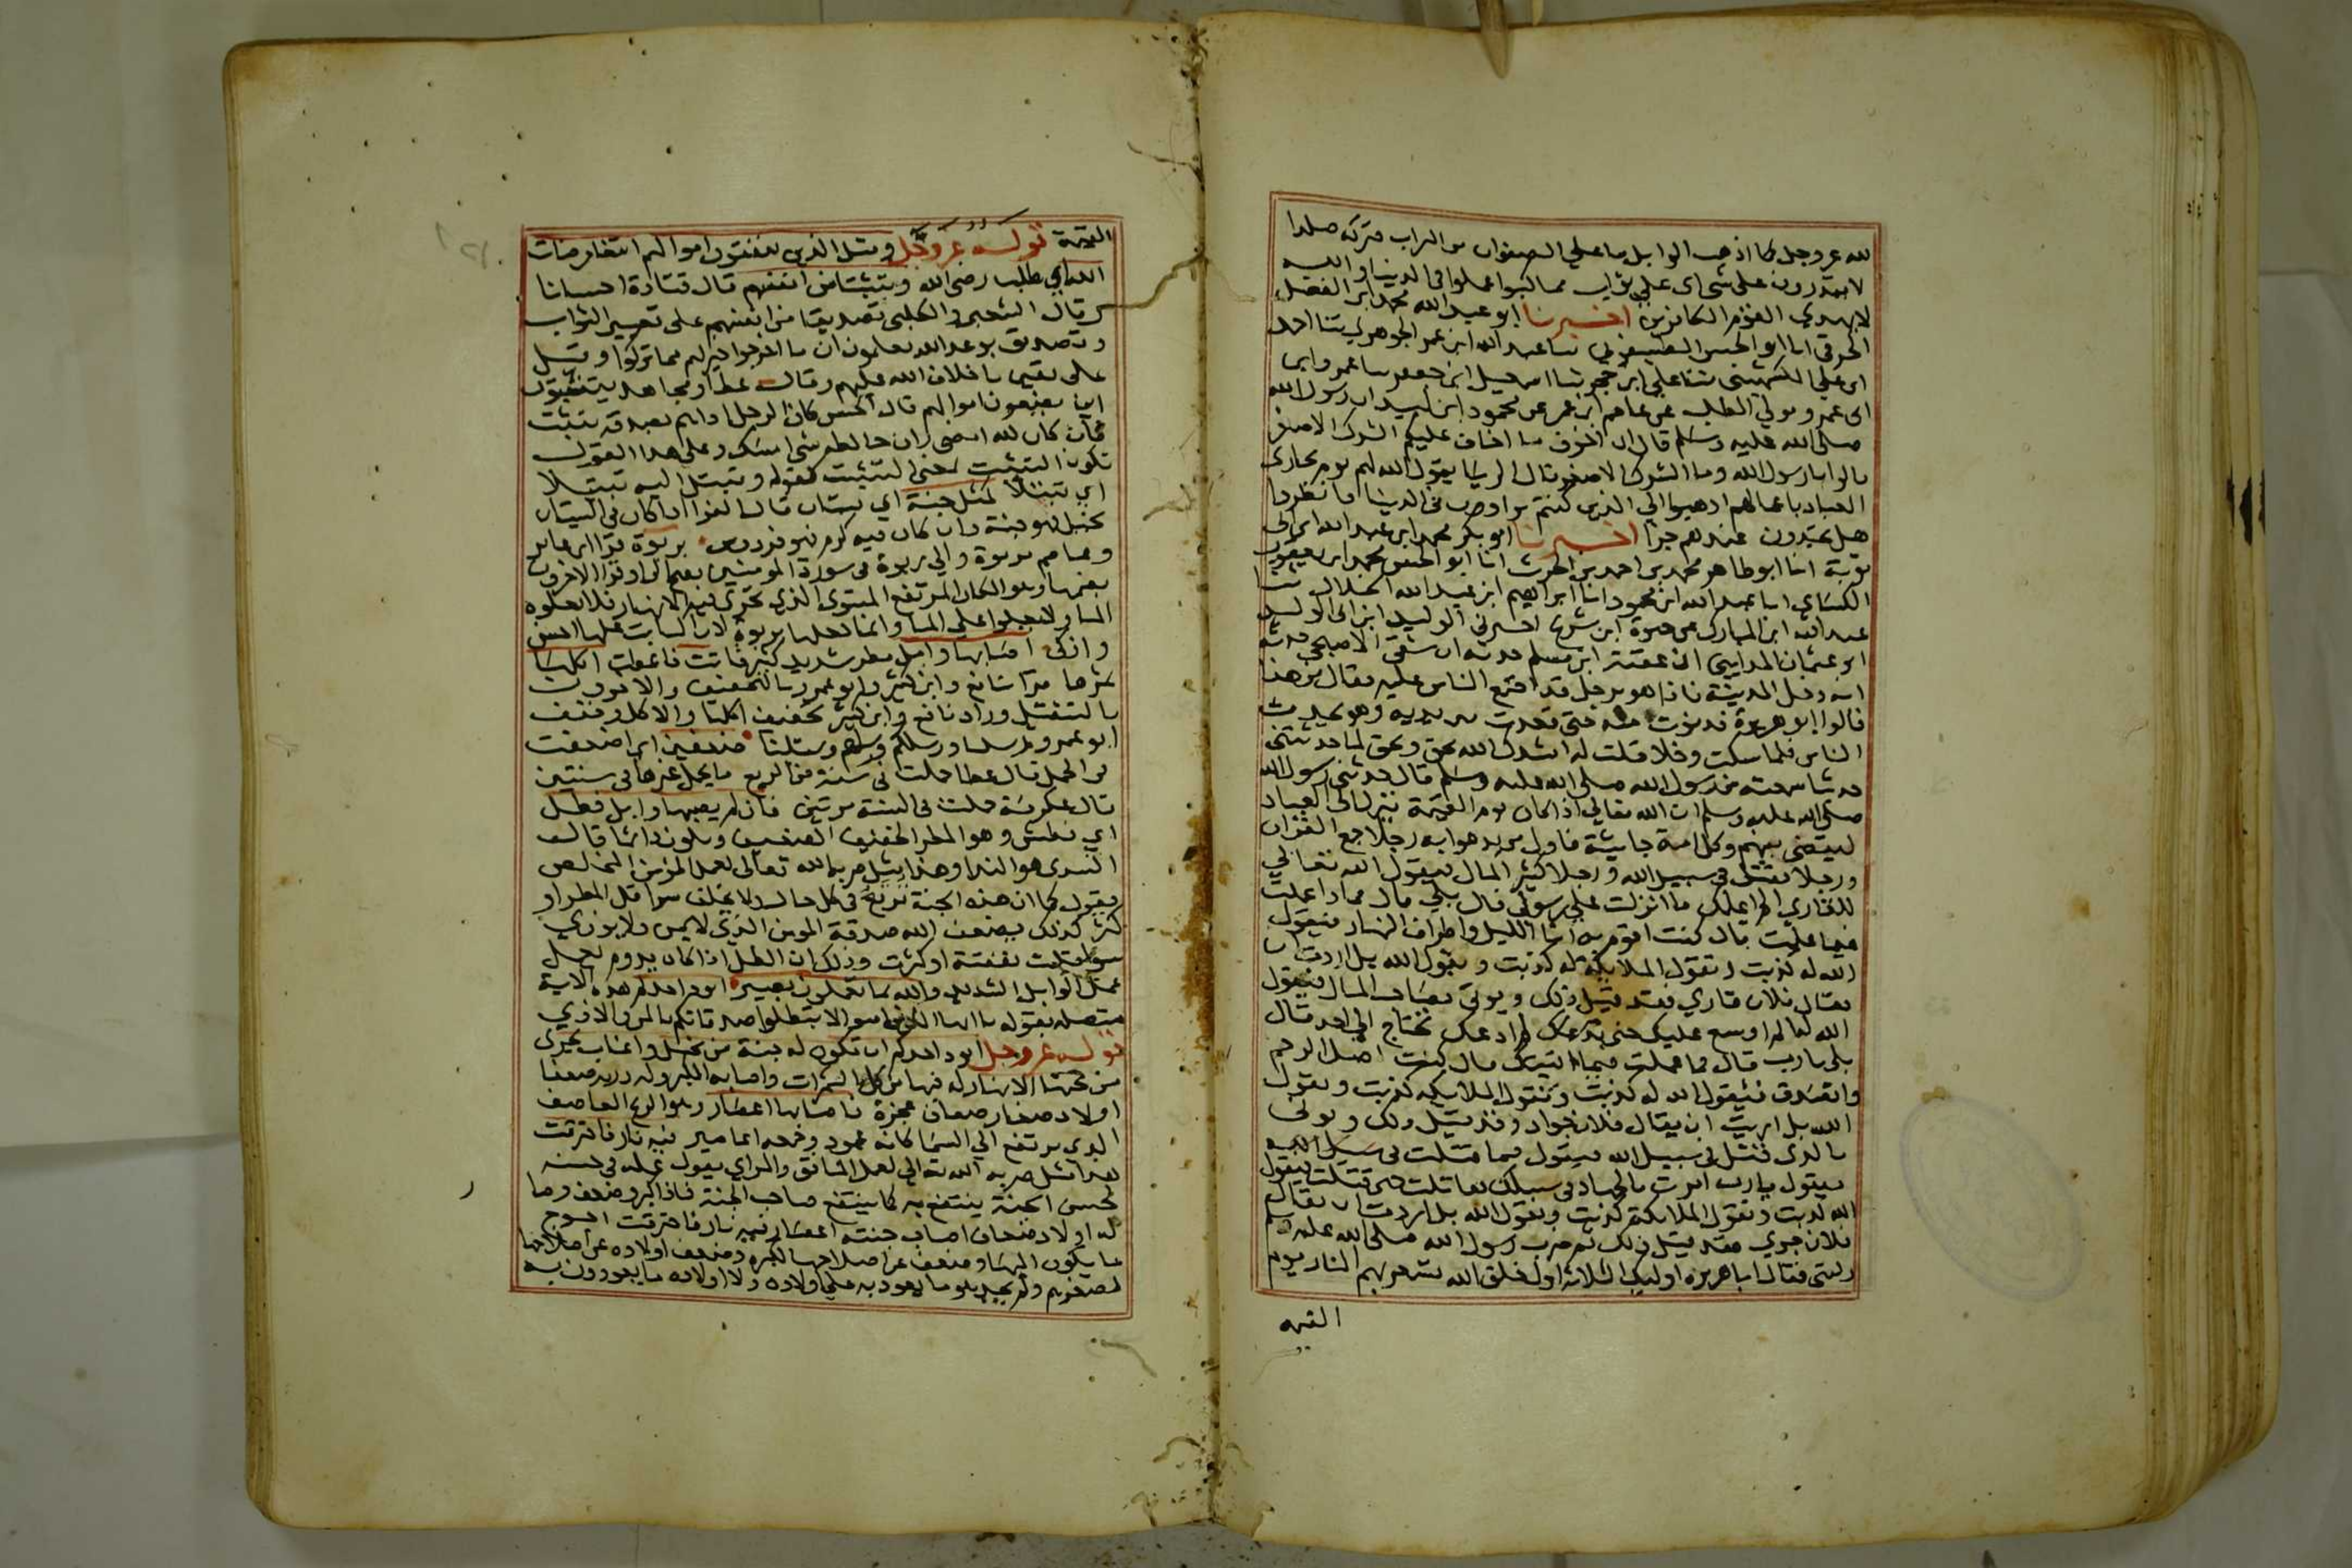 لله عز وجل كما اذهب الوابل ما على الصفوان من التراب فتركه صلدا
لا يقدرون على شي اى على ثواب مما كسبوا عملوا فى الدينا والله
لا يهدي القوم الكافرين اخبرنا ابو عبد الله محمد ابن الفضل
الخرقى انا ابو الحسن الطيسفونى نا عبد الله ابن عمر الجوهري ثنا احمد
ابن على الكشميهنى ثنا علي ابن حجر ثنا اسمعيل ابن جعفر نا عمرو ابن
ابى عمرو مولى المطلب عن عاصم ابن عمر عن محمود ابن لبيد ان رسول الله
صلى الله عليه وسلم قال ان اخوف ما اخاف عليكم الشرك الاصغر
قالوا يا رسول الله وما الشرك الاصغر قال الريا يقول الله لهم يوم يجازى
العباد باعمالهم اذهبوا الي الذين كنتم تراون فى الدينا فانظروا
هل تجدون عندهم جزا اخبرنا ابو بكر محمد ابن عبد الله ابن ابى
توبة انا ابو طاهر محمد بن احمد بن الحرث انا ابو الحسن محمد ابن يعقوب
الكساي انا عبد الله ابن محمود انا ابراهيم ابن عبد الله الخلال ثنا
عبد الله ابن المبارك عن حيوة ابن شريح اخبرنى الوليد ابن ابى الوليد
ابو عثمان المدايني ان عقبة ابن مسلم حدثه ان شفى الاصبحى حدثه
انه دخل المدينة فاذا هو برجل قد اجتمع الناس عليه فقال من هذا
قالوا ابو هريرة فدنوت منه حتى قعدت بين يديه وهو يحدث
الناس فلما سكت وخلا قلت له انشدك الله بحق وبحق لما حدثتنى
حديثا سمعته من رسول الله صلى الله عليه وسلم قال حدثنى رسول الله
صلى الله عليه وسلم ان الله تعالى اذا كان يوم القيمة ينزل الى العباد
ليقضى بينهم وكل امة جاثية فاول من يدعوا به رجلا جمع القران
ورجلا يقتل فى سبيل الله ورجلا كثير المال فيقول الله تعالي
للقاري الم اعلمك ما انزلت على رسولى قال بلى قال فماذا عملت
فيما علمت قال كنت اقوم به انا الليل واطراف النهار فيقول
الله له كذبت وتقول الملايكة له كذبت ويقول الله بل اردت ان
يقال فلان قاري فقد قيل ذلك ويوتى بصاحب المال فيقول
الله له الم اوسع عليك حتى لم ادعك تحتاج الى احد قال
بلى يارب قال فما عملت فيما اتيتك قال كنت اصل الرحم
واتصدق فيقول الله له كذبت وتقول الملايكه كذبت ويقول
الله بل اردت ان يقال فلان جواد وقد قيل ذلك ويوتى
بالذى قتل فى سبيل الله فيقول فيما قتلت فى سبيل الله
فيقول يارب امرت بالجهاد فى سبيلك فقاتلت حتى قتلت فيقول
الله كذبت وتقول الملايكة كذبت ويقول الله بل اردت ان يقال
فلان جري فقد قيل ذلك ثم ضرب رسول الله صلى الله عليه وسلم
ركبتى فقال ابا هريره اوليك الثلاثه اول خلق الله تسعر بهم النار يوم
القيمه
القيمة قوله عز وجل ومثل الذين ينفقون اموالهم ابتغا مرضات
الله اي طلب رضى الله وتثبيتا من انفسهم قال قتادة احتسابا
وقال الشعبى والكلبى تصديقا من انفسهم على تعيير الثواب
وتصديق بوعد الله يعلمون ان ما اخرجوا خير لهم مما تركوا وقيل
على يقين باخلاف الله عليهم وقال عطا ومجاهد يتثبتون
اين يضعون اموالهم قال الحسن كان الرجل اذا هم بصدقه تثبت
فان كان لله امضى وان خالطه شى امسك وعلى هذا القول
تكون التثبيت بمعنى التثبت كقوله وتبتل اليه تبتيلا
اي تبتلا كمثل جنة اي بستان قال الفرا اذا كان فى البستان
نخيل فهو جنة وان كان فيه كرم فهو فردوس بربوة قرا ابن عامر
وعاصم بربوة والي ربوة فى سورة المومنين بفتح الرا وقرا الاخرون
بضمها وهو المكان المرتفع المستوى الذي تجرى فيه الانهار فلا يعلوه
الما ولا يعلوا على الما وانما جعلها بربوة لان النبات عليها احسن
وازكى اصابها وابل مطر شديد كثير فاتت فاعطت اكلها
ثمرها قرا نافع وابن كثير وابو عمرو بالتخفيف والاخرون
بالتثقيل وزاد نافع وابن كثير تخفيف اكلها والاكل وخفف
ابو عمرو رسلنا ورسلكم ورسلهم وسبلنا ضعفين اى اضعفت
فى الحمل قال عطا حملت فى سنة من الريع ما يحمل غيرها فى سنتين
قال عكرمة حملت فى السنة مرتين فان لم يصبها وابل فطل
اي فطش وهو المطر الخفيف الضعيف ويكون دائما قال
السدى هو الندا وهذا مثل ضربه الله تعالى لعمل المومن المخلص
فيقول كما ان هذه الجنة تريع فى كل حال ولا يخلف سوا قل المطر او
كثر كذلك يضعف الله صدقة المومن الذي لا يمن ولا يوذي
سوا قلت نفقته او كثرت وذلك ان الطل اذا كان يدوم يعمل
عمل الوابل الشديد والله بما تعملون بصير ايود احدكم هذه الاية
متصله بقوله يا ايها الذين امنوا لا تبطلوا صدقاتكم بالمن والاذي
قوله عز وجل ايود احدكم ان تكون له جنة من نخيل واعناب تجرى
من تحتها الانهار له فيها من كل الثمرات واصابه الكبر وله ذريه ضعفا
اولاد صغار ضعاف عجزة فاصابها اعصار وهو الريح العاصف
الذى يرتفع الى السما كانه عمود وجمعه اعاصير فيه نار فاحترقت
هذا مثل ضربه الله تعالى لعمل المنافق والمراي يقول عمله فى حسنه
كحسن الجنة ينتفع به كما ينتفع صاحب الجنة فاذا كبر وضعف وصار
له اولاد ضعاف اصاب جنته اعصار فيه نار فاحترقت احوج
ما يكون اليها وضعف عن اصلاحها لكبره وضعف اولاده عن اصلاحها
لصغرهم ولم يجد هو ما يعود به على اولاده ولا اولاده ما يعودون به